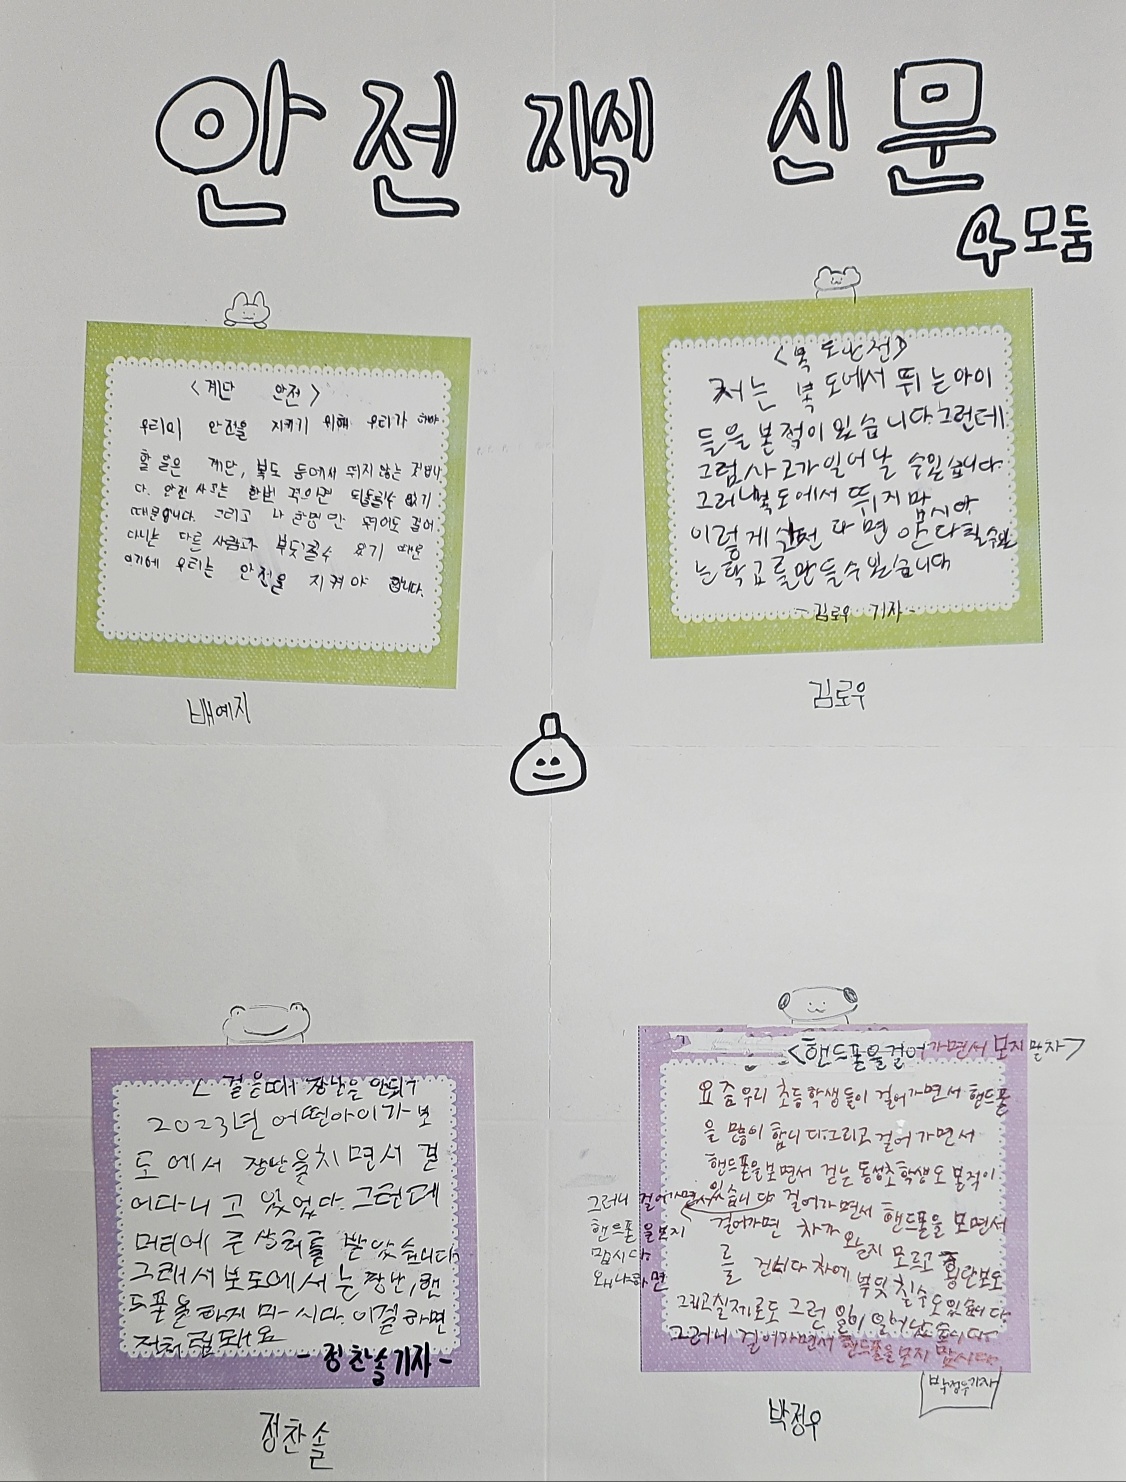 안전 지식 신문
4모둠
<계단 안전>
우리의 안전을 지키기 위해 우리가 해야
할 일은 계단, 복도 등에서 뛰지 않는 것입니
다. 안전 사고는 한번 겪으면 되돌릴수 없기
때문입니다. 그리고 나 한명만 뛰어도 걸어
다니는 다른 사람과 부딪힐수 있기 때문
이기에 우리는 안전을 지켜야 합니다.
배예지
<복도안전>
저는 복도에서 뛰는아이
들을 본적이 있습니다.그런데
그럼사고가일어날 수있습니다
그러니복도에서 뛰지맙시다
이렇게 다면 안다칠수있
는학교를만들수있습니다
-김로우 기자-
김로우
< 걸을때 장난은 안되
2023년 어떤아이가 보
도에서 장난을치면서 걸
어다니고 있었다. 그런데
머리에 큰 상처를 받았습니다
그래서 보도에서는 장난,핸
드폰을 하지 마시다. 이걸하면
-정찬솔기자-
정찬솔
<핸드폰을걸어가면서 보지말자>
요즘우리 초등학생들이 걸어가면서 핸드폰
을 많이 합니다.그리고걸어가면서
핸드폰을보면서 걷는 동성초학생도 본적이
있습니다 걸어가면서 핸드폰을 보면서
그러니 걸어가면서
핸드폰을보지
맙시다
왜냐하면
걸어가면 차가 올지 모르고 횡단보도
를 건너다 차에 부딪칠수도있습니다
그리고실제로도 그런 일이 일어났습니다
그러니 걸어가면서 핸드폰을보지 맙시다
박정우기자
박정우